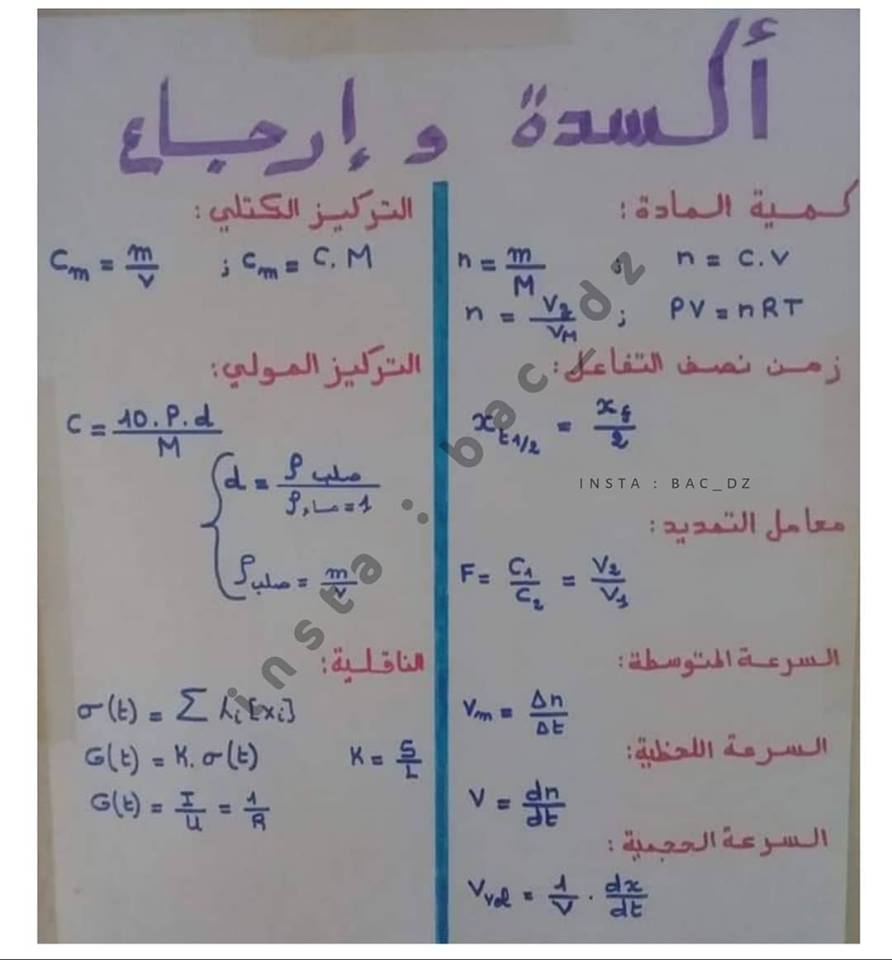 أكسدة و إرجاع
كمية المادة :
n = m/M ; n = C.V
n = Vg/VM ; PV = nRT
زمن نصف التفاعل :
xt1/2 = xf/2
INSTA : BAC_DZ
معامل التمديد :
F = C1/C2 = V2/V1
السرعة المتوسطة :
Vm = Δn/Δt
السرعة اللحظية :
V = dn/dt
السرعة الحجمية :
Vvol = 1/V . dx/dt
التركيز الكتلي :
Cm = m/V ; Cm = C.M
التركيز المولي :
C = 10.P.d/M
d = ρصلب/ρماء=1
ρصلب = m/V
الناقلية :
σ(t) = Σ λi[xi]
G(t) = K.σ(t) K = S/L
G(t) = I/U = 1/R
insta : bac_dz